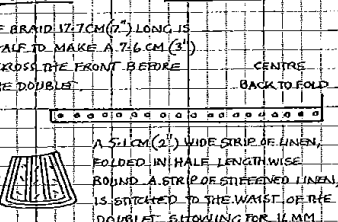 BRAID 17.7CM (7") LONG IS
TO MAKE A 7.6 CM (3")
THE FRONT BEFORE
DOUBLET
CENTRE
BACK TO FOLD
A 5.1 CM (2") WIDE STRIP OF LINEN,
FOLDED IN HALF LENGTHWISE
ROUND A STRIP OF STIFFENED LINEN,
IS STITCHED TO THE WAIST OF THE
DOUBLET SHOWING FOR 12 MM